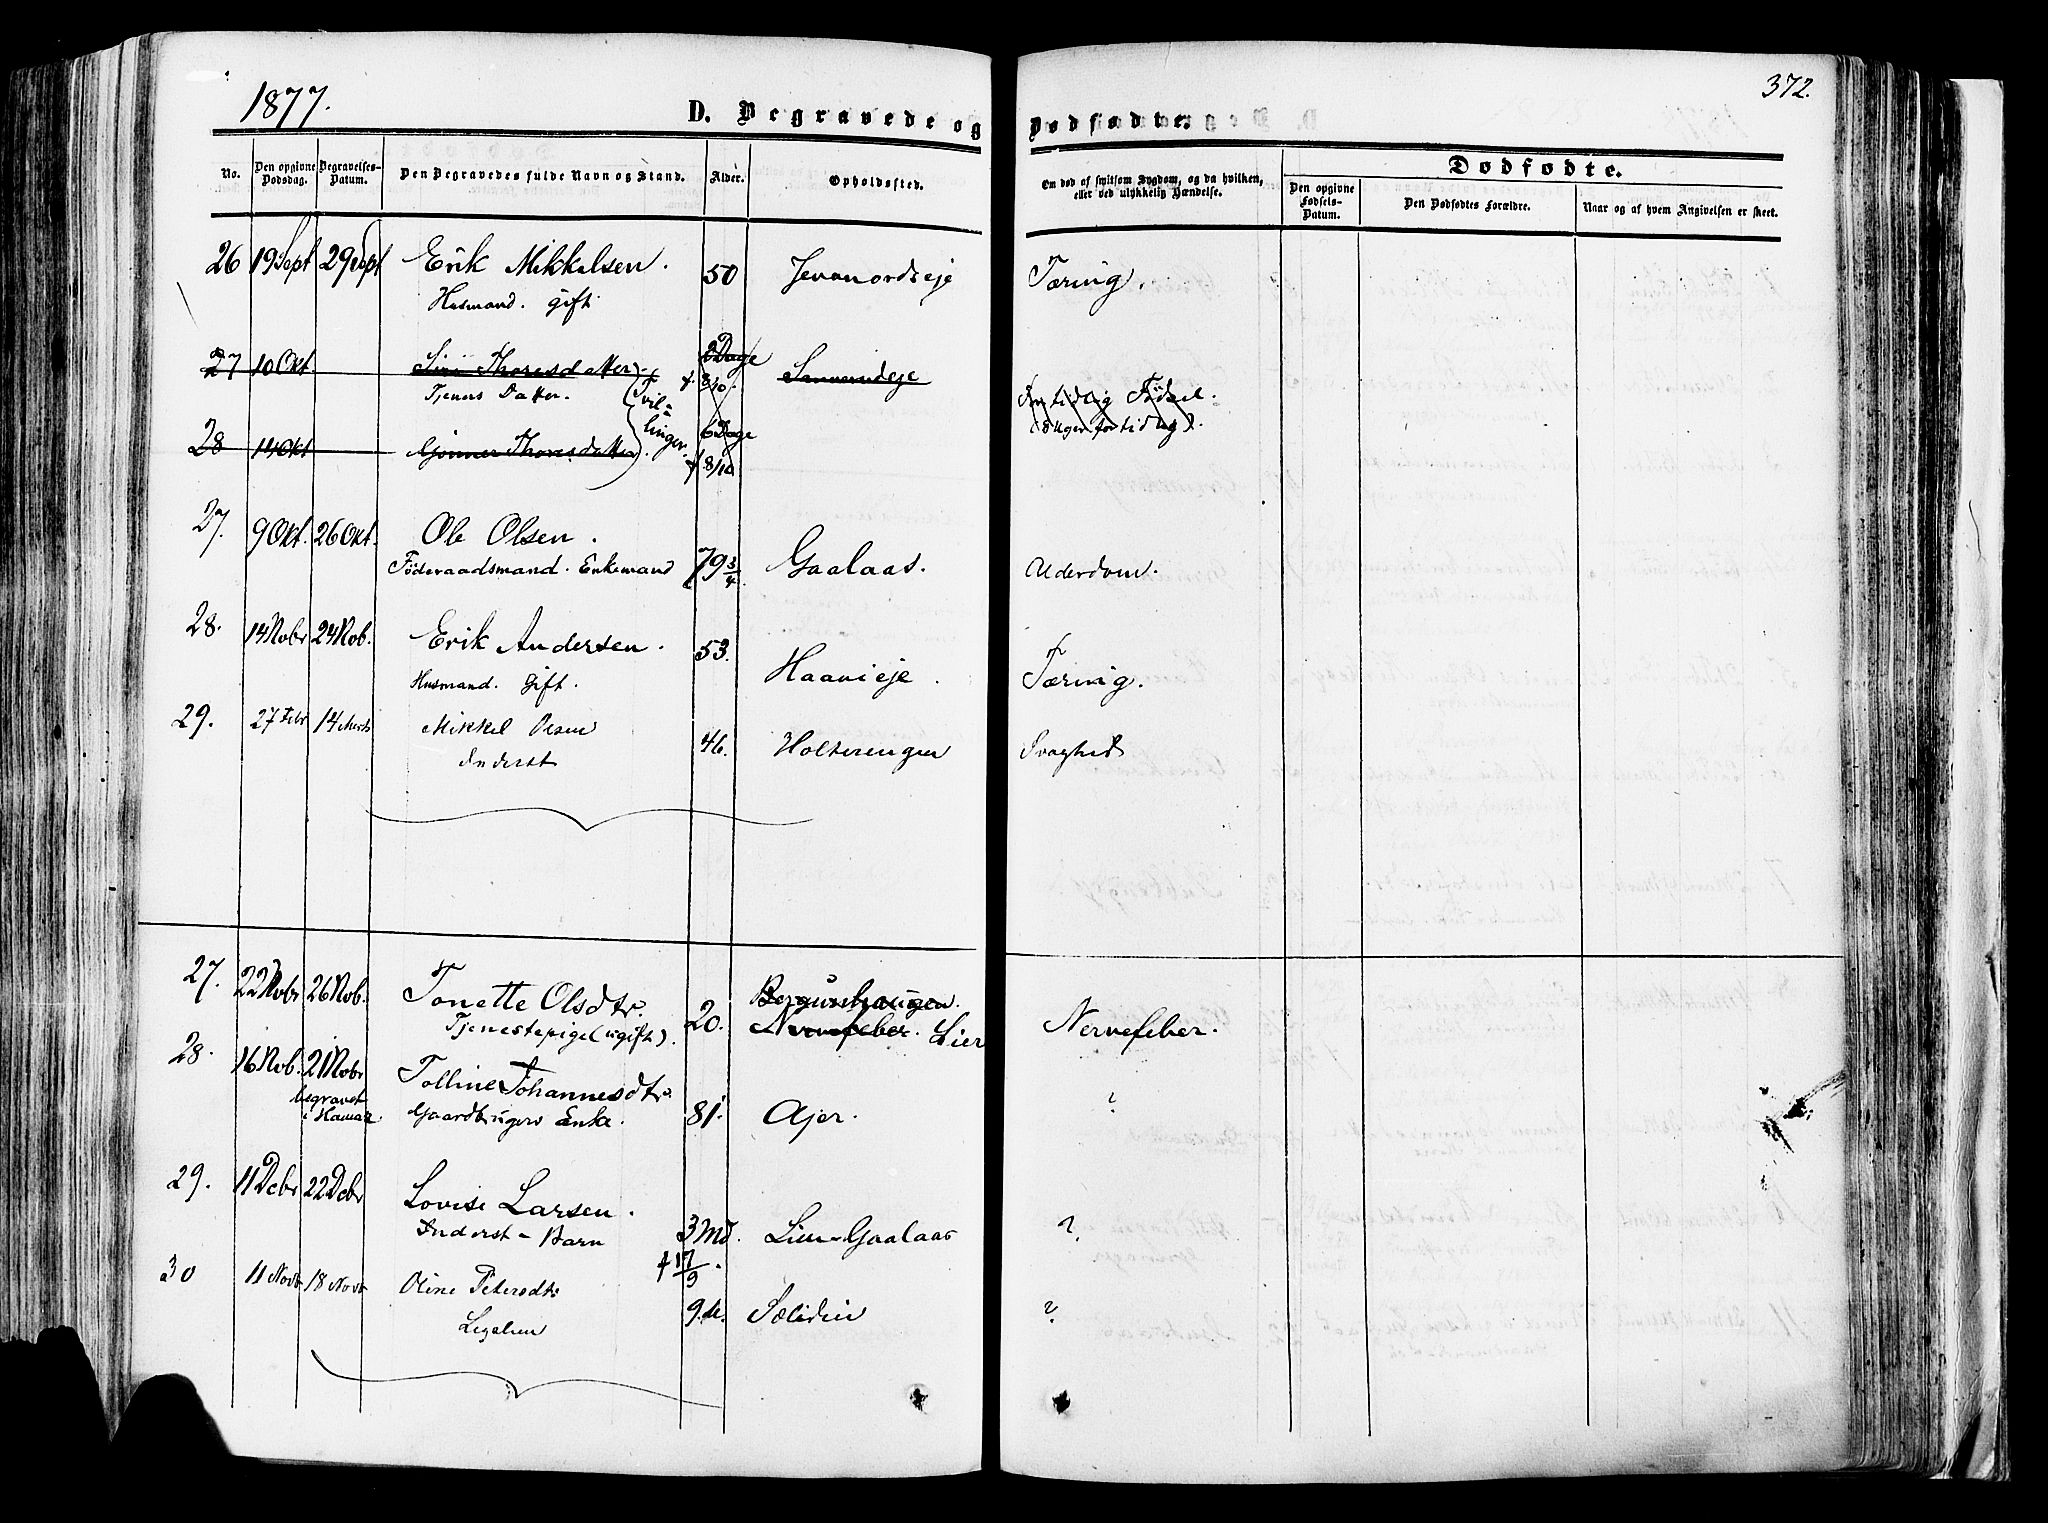 1877.
D. Begravede og Dødfødte.
372.
No.
Den opgivne Dødsdag.
Begravelses-Datum.
Den Begravedes fulde Navn og Stand.
Alder.
Opholdssted.
Om død af smitsom Sygdom, og da hvilken,
eller ved ulykkelig Hændelse.
Dødfødte.
Den opgivne Fødsels-Datum.
Den Dødfødtes Forældre.
Naar og af hvem Angivelsen er skeet.
26 19 Sept 29 Sept Erik Mikkelsen. 50 Jevanordseje Tæring.
Husmand. gift.
27 10 Okt. Siri Thoresdatter 2 Dage Sanverudeje
Tjeners Datter. (Tvil= † 8/10.
For tidlig Födsel.
(8 Uger for tidlig).
28 14 Okt Gjönner Thoresdatter). linger. 6 Dage
† 8/10
27. 9 Okt. 26 Okt. Ole Olsen. 79 3/4 Gaalaas. Alderdom.
Föderaadsmand. Enkemand
28. 14 Nobr 24 Nob. Erik Andersen. 53. Haavieje. Tæring.
Husmand. Gift.
29. 27 Febr 14 Marts Mikkel Olsen 46. Holterengen Svaghed
Inderst
27. 22 Nobr 26 Nob. Tonette Olsdtr. 20. Bergershaugen. Nervefeber.
Tjenestepige (ugift). Nervefeber. Lier
28. 16 Nob. 21 Nobr Tolline Johannesdtr. 81. Ajer. ?
begravet i Hamar Gaardbrugers Enke.
29. 11 Debr 22 Debr Lovise Larsen. 3 Md. Lien-Gaalaas ?
Inderst-Barn
† 17/9.
30 11 Novbr 18 Novbr Oline Petersdtr 9. M. Sælidin ?
Legdlem